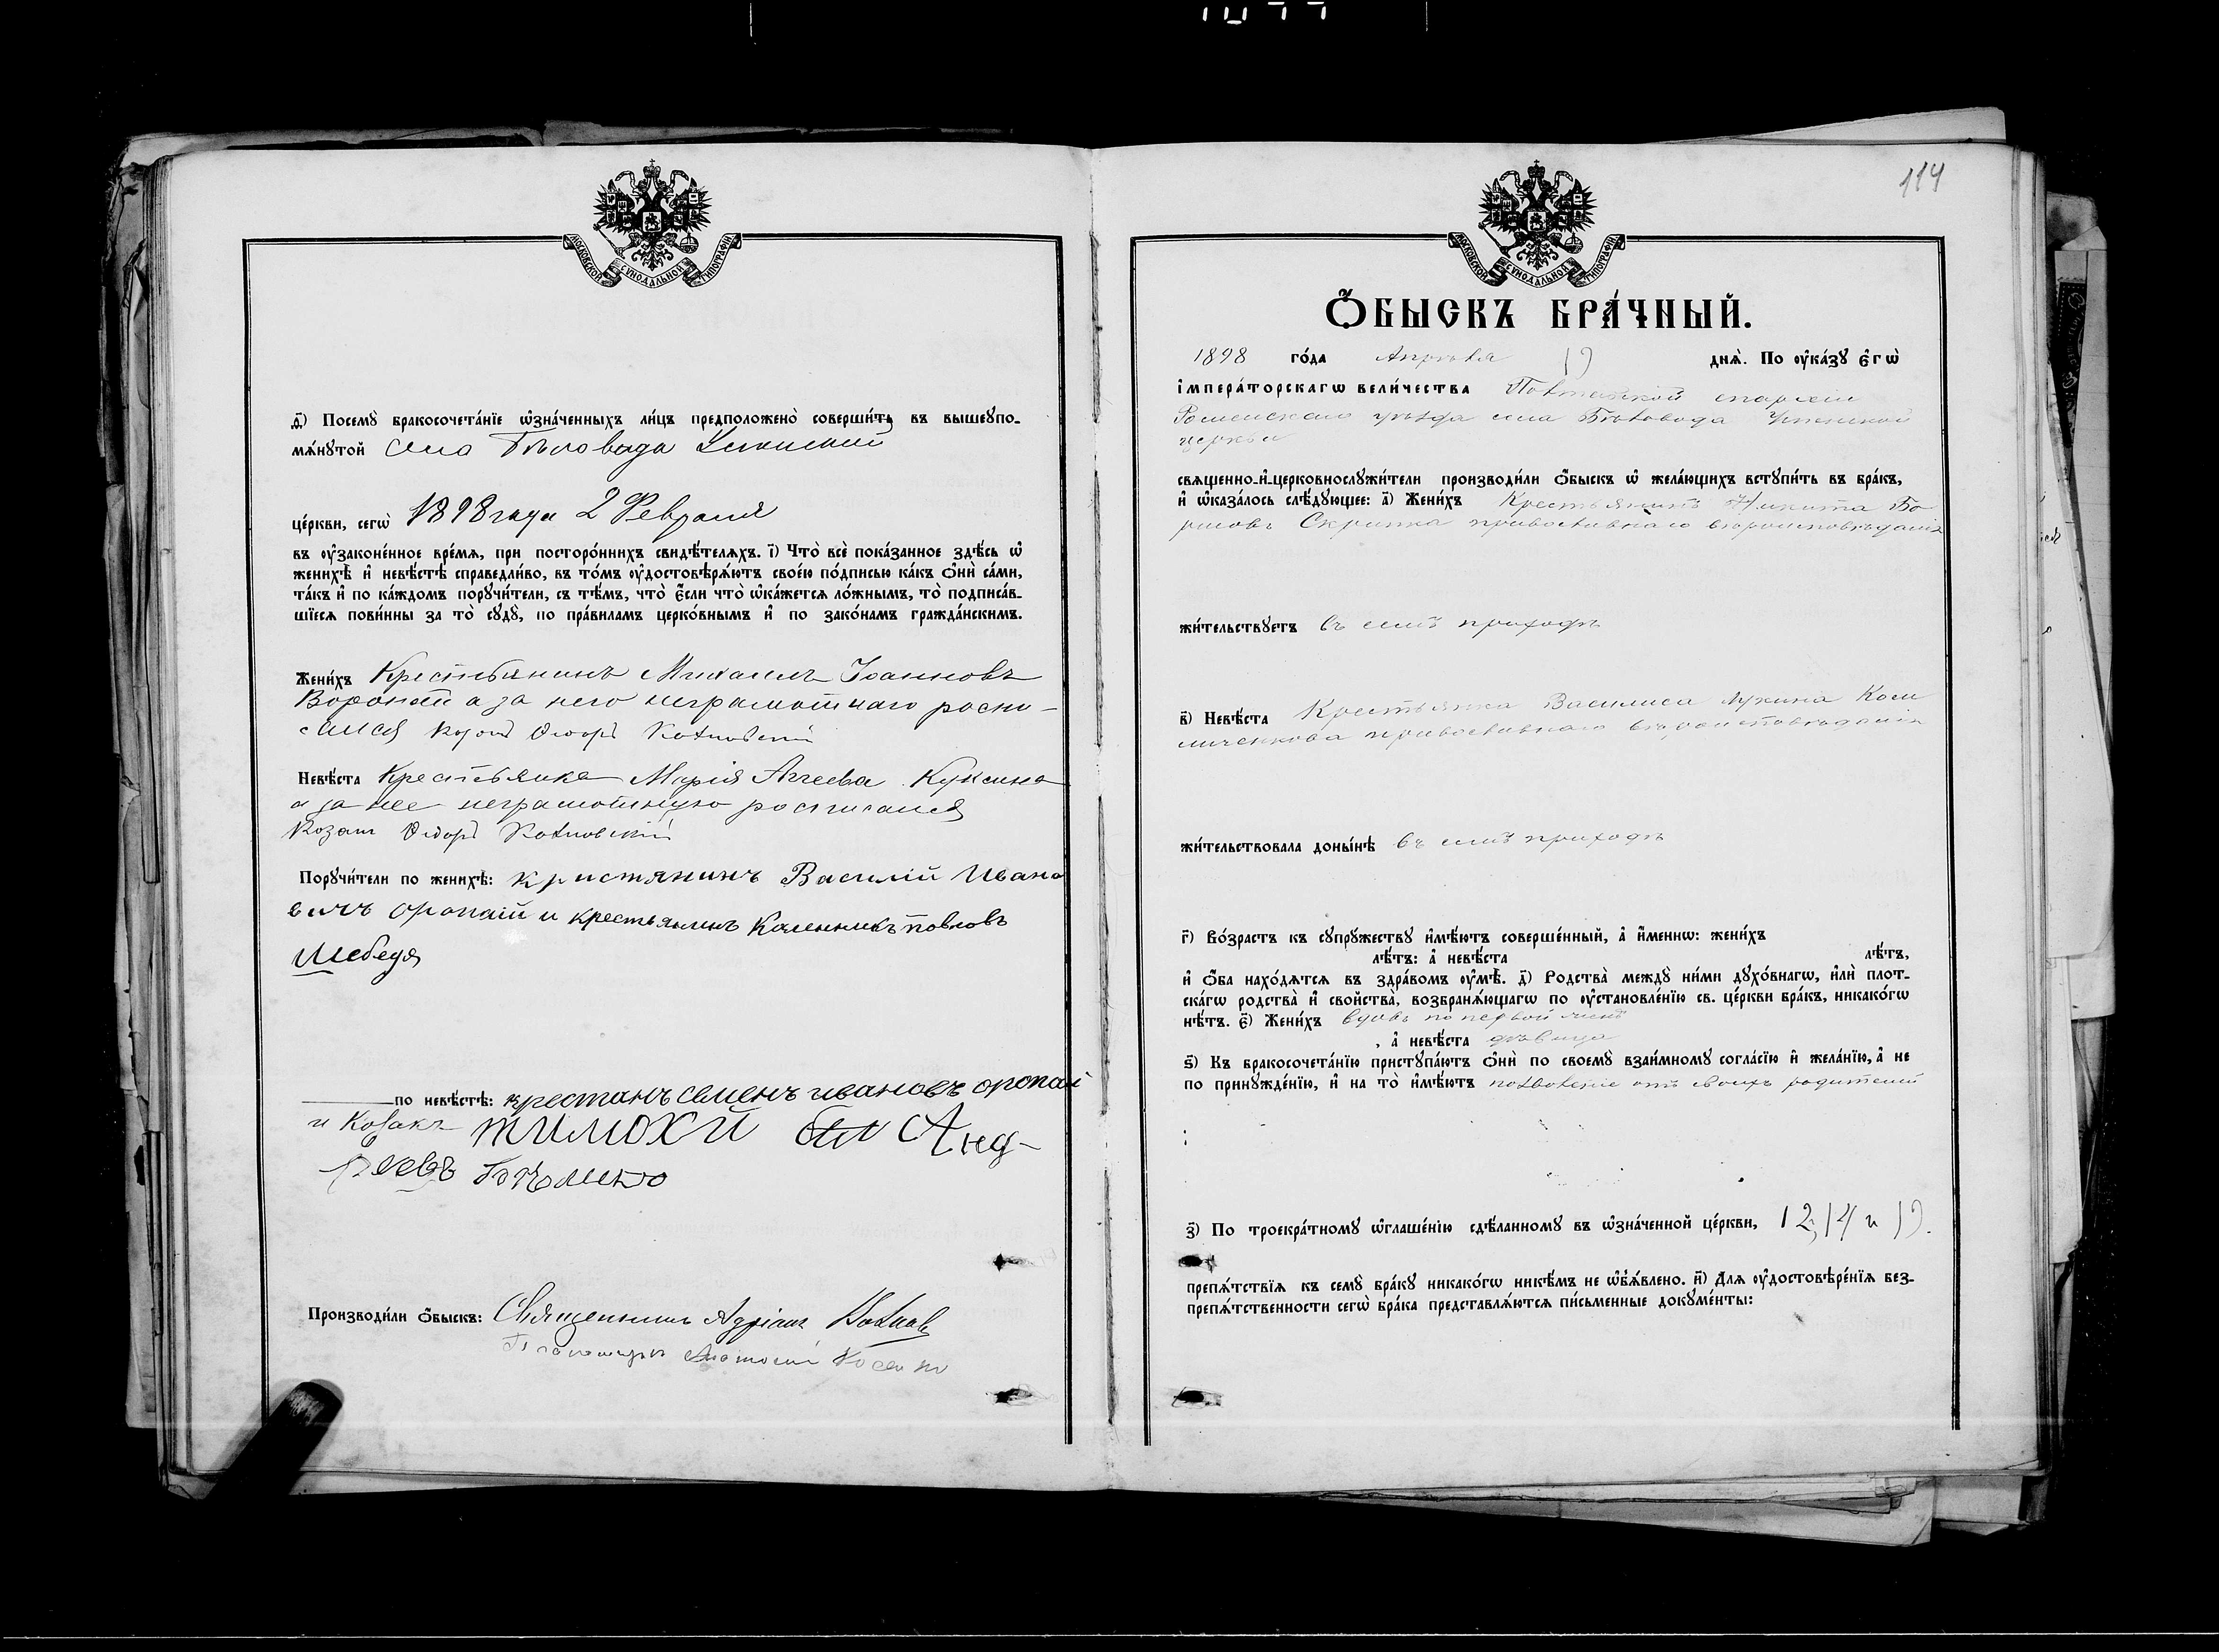 МОСКОВСКОЙ СѴНОДАЛЬНОЙ ТИПОГРАФІИ
д҃) Посемꙋ̀ бракосочета́нїе ѡ҆зна́ченныхъ ли́цъ предположено̀ соверши́ть въ вышеꙋпо-
мѧ́нꙋтой села Бѣловода Успенской
це́ркви, сегѡ̀ 1898 года 2 Февраля
въ ᲂу҆законе́нное вре́мѧ, при посторо́ннихъ свидѣ́телѧхъ. і҃) Что̀ всѐ пока́занное здѣ́сь ѡ҆
женихѣ̀ и҆ невѣ́стѣ справедли́во, въ то́мъ ᲂу҆достовѣрѧ́ютъ свое́ю по́дписью ка́къ ѻ҆нѝ са́ми,
та́къ и҆ по ка́ждомъ порꙋчи́тели, съ тѣ́мъ, что̀ є҆́сли что̀ ѡ҆ка́жетсѧ ло́жнымъ, то̀ подписа́в-
шїесѧ пови́нны за то̀ сꙋдꙋ̀, по пра́виламъ церко́внымъ и҆ по зако́намъ гражда́нскимъ.
Жени́хъ Крестьянинъ Михаилъ Іоанновъ
Воропай а за него неграмотнаго роспи-
сался Козакъ Ѳеодоръ
Невѣ́ста Крестьянка Марія Аггеева Куксина
а за нее неграмотную росписался
Козакъ Ѳеодоръ
Порꙋчи́тели по женихѣ̀: кристянинъ Василій Ивано
вичъ оропай и крестьянинъ Каленникъ Повловъ
Шебедя
по невѣ́стѣ: крестянъ семенъ ивановъ оропай
и Козакъ тимохй Анд-
реевъ
Производи́ли ѻ҆́быскъ: Священникъ Адріанъ
114
МОСКОВСКОЙ СѴНОДАЛЬНОЙ ТИПОГРАФІИ
Ѻ҆́БЫСКЪ БРА́ЧНЫЙ.
1898 го́да Апрѣля 19 днѧ̀. По ᲂу҆ка́зꙋ є҆гѡ̀
і҆мпера́торскагѡ вели́чества Полтавской епархіи
Роменскаго уѣзда села Бѣловода Успенской
церкви
свѧщенно-и҆-церковнослꙋжи́тели производи́ли ѻ҆́быскъ ѡ҆ жела́ющихъ вступи́ть въ бра́къ,
и҆ ѡ҆каза́лось слѣ́дꙋющее: а҃) Жени́хъ Крестьянинъ Никита Бо
рисовъ Скрипка православнаго вѣроисповѣданія
жи́тельствꙋетъ въ семъ приходѣ
в҃) Невѣ́ста Крестьянка Василиса Лукина Коли
ниченкова православнаго вѣроисповѣданія
жи́тельствовала доны́нѣ въ семъ приходѣ
г҃) Во́зрастъ къ сꙋпрꙋжествꙋ и҆мѣ́ютъ соверше́нный, а҆ и҆́меннѡ: жени́хъ
лѣ́тъ: а҆ невѣ́ста лѣ́тъ,
и҆ ѻ҆́ба нахо́дѧтсѧ въ здра́вомъ ᲂу҆мѣ̀. д҃) Родства̀ междꙋ̀ ни́ми дꙋхо́внагѡ, и҆лѝ плот-
ска́гѡ родства̀ и҆ свойства̀, возбранѧ́ющагѡ по ᲂу҆становле́нїю св. це́ркви бра́къ, никако́гѡ
нѣ́тъ. є҃) Жени́хъ вдовъ по первой женѣ
, а҆ невѣ́ста дѣвица
ѕ҃) Къ бракосочета́нїю пристꙋпа́ютъ ѻ҆нѝ по своемꙋ̀ взаи́мномꙋ согла́сїю и҆ жела́нїю, а҆ не
по принꙋжде́нїю, и҆ на то̀ и҆мѣ́ютъ позволеніе отъ своихъ родителей
з҃) По троекра́тномꙋ ѡ҆глаше́нїю сдѣ́ланномꙋ въ ѡ҆зна́ченной це́ркви, 12, 14 и 19.
препѧ́тствїѧ къ семꙋ̀ бра́кꙋ никако́гѡ никѣ́мъ не ѡ҆б̾ѧ́влено. и҃) Длѧ ᲂу҆достовѣре́нїѧ без-
препѧ́тственности сегѡ̀ бра́ка представлѧ́ютсѧ пи́сьменные докꙋме́нты: